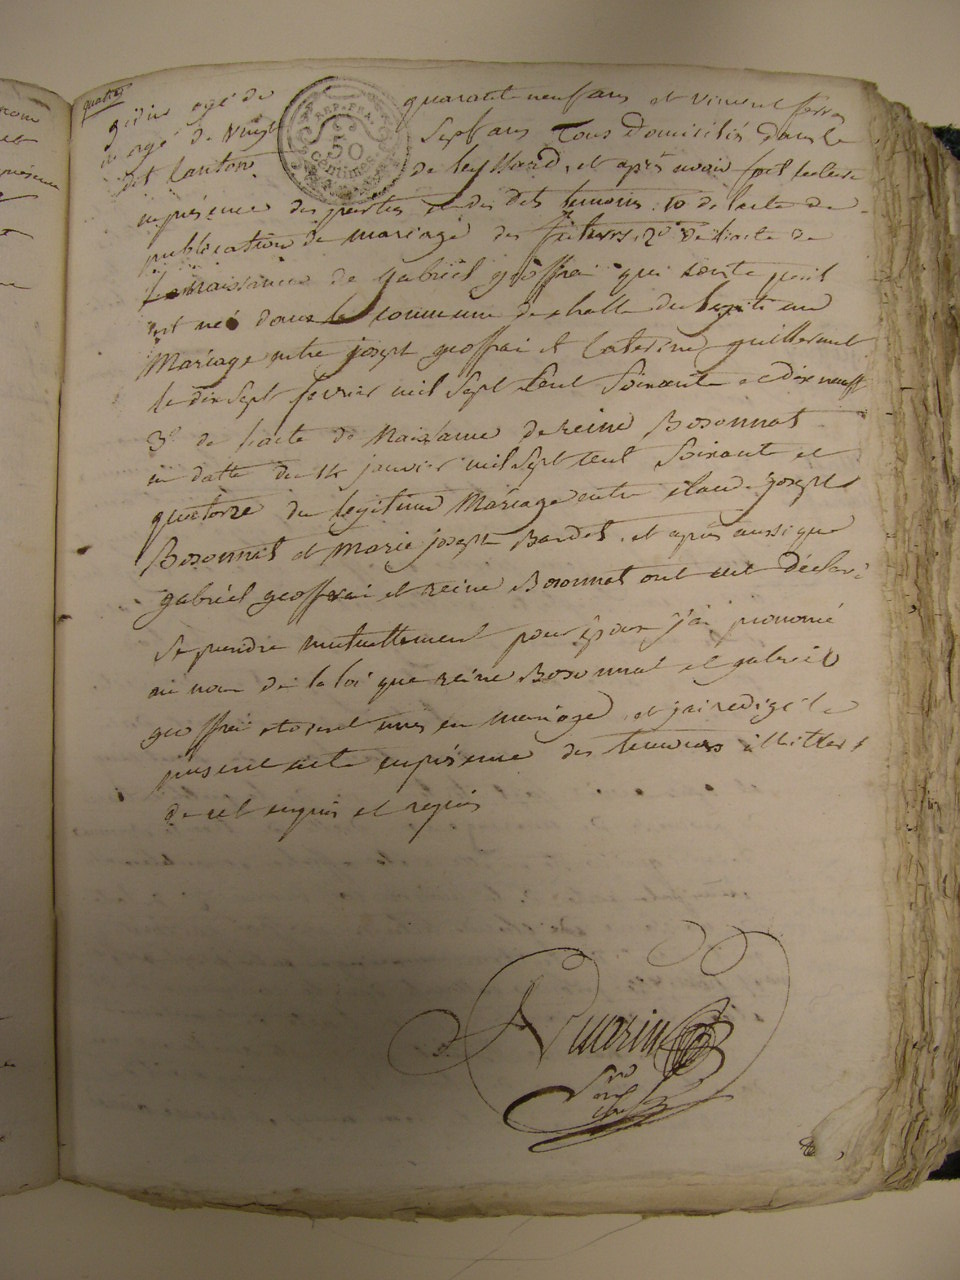 quatre
gedin agé de quarante neuf ans et vincent ferra
agé de Vingt Sept ans Tous Domiciliés dans le
dit Canton de Leyssard, et après avoir fait lecture
REP. FRA.
50
centimes
en présence des parties et des dits temoins. 1o de l'acte de
publication de mariage des futurs. 2o de l'acte de
Naissance de gabriël geoffrai qui conste qu'il
est né dans la commune de challe du legitime
Mariage entre joseph geoffrai et Caterine guillermet
le dix Sept fevrier mil Sept Cent Soixante et dix neuf
3o de l'acte de Naissance de reine Bosonnat
en datte du 14 janvier mil Sept Cent Soixante et
quatorze du legitime Mariage entre claude joseph
Bosonnat et Marie joseph Bardet. et après aussi que
gabriël geoffrai et reine Bosonnat ont eut déclaré
Se prendre mutuellement pour époux j'ai prononcé
au nom de la loi que reine Bosonnat et gabriel
geoffrai etoient unis en mariage, et j'ai redigé le
present acte en présence des temoins illitterés
de cet enquis et requis